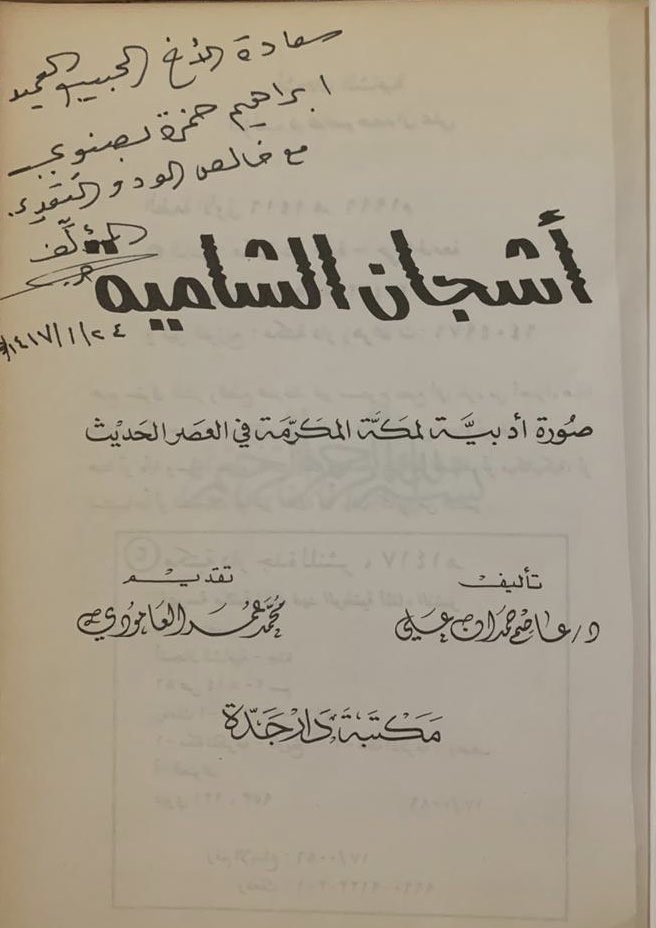 سعادة الأخ الحبيب العميد
ابراهيم حمزة بصنوي
مع خالص الود والتقدير
المؤلف
١٤١٧/١/٢٤هـ
أشجان الشامية
صورة أدبيَّة لمكَّة المكرَّمة في العصر الحَديث
تأليف
د/عاصم حمدان علي
تقديم
محمَّد عمر العامودي
مَكتَبَة دَار جَدّة